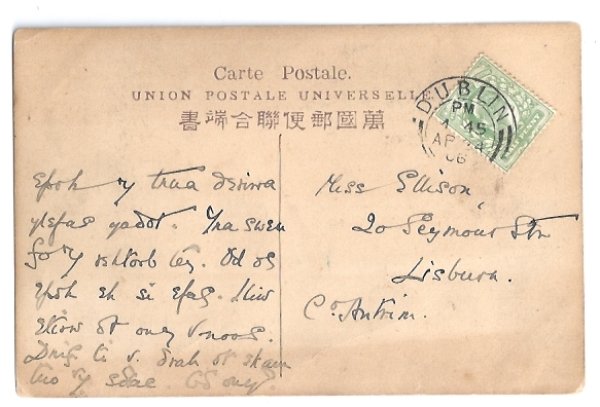 Carte Postale.
UNION POSTALE UNIVERSELLE
萬國郵便聯合端書
DUBLIN
PM
45
AP 24
06
Epoh ry tnua devirra
ylefas yadot. Yna swen
fo ry rehtorb tey. Od os
epoh eh si efas. Lliw
etirw ot uoy v noos.
Dnif ti v. drah ot ekam
tuo ry sdrac. Od uoy?
Miss Ellison,
20 Seymour Str
Lisburn.
Co. Antrim.